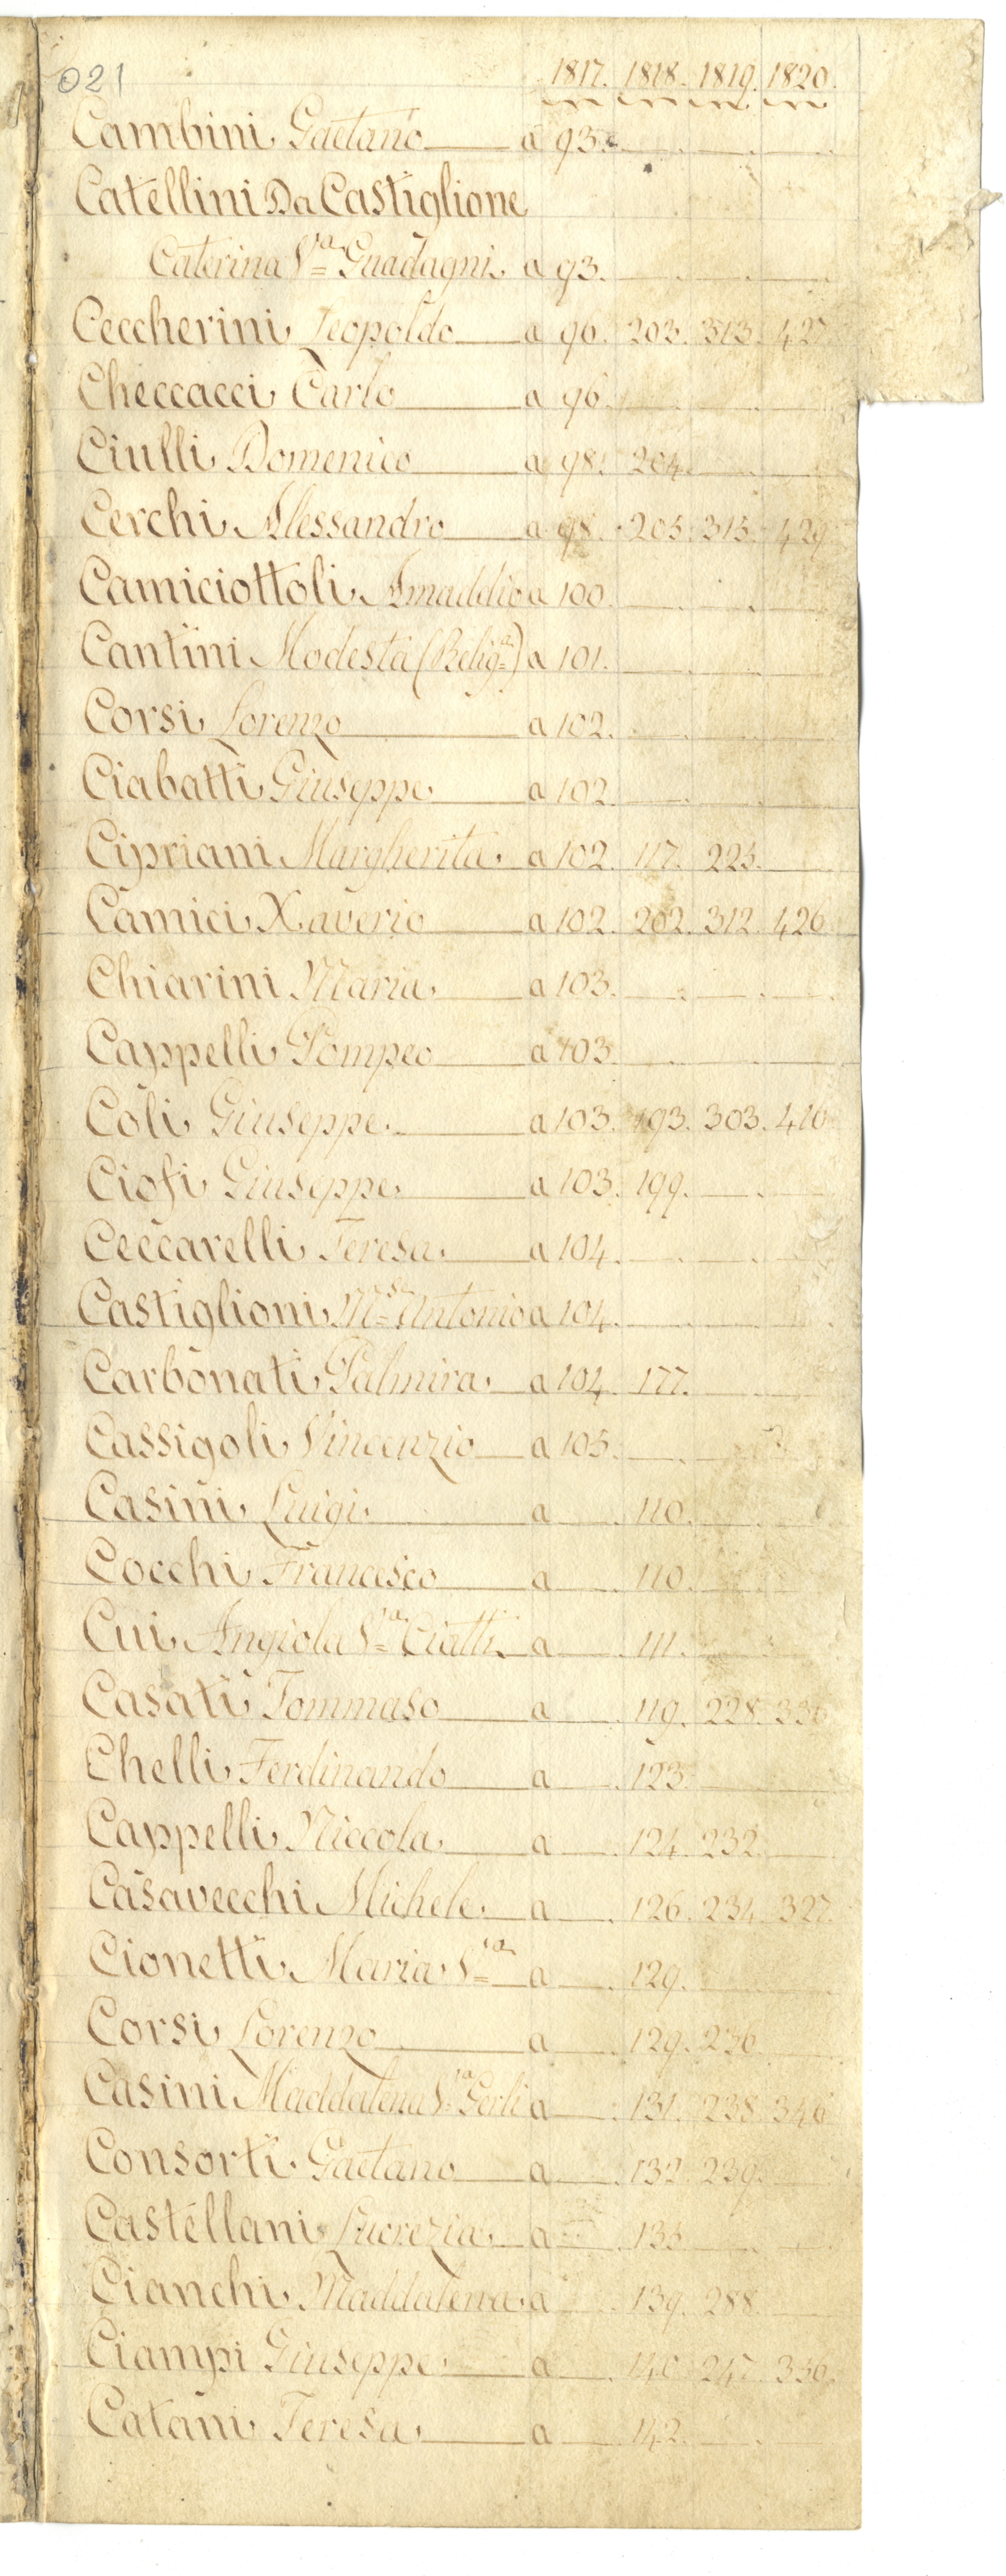 021
1817. 1818. 1819. 1820.
Cambini Gaetano a 93.
Catellini Da Castiglione
Caterina V.a Guadagni a 93.
Ceccherini Leopoldo a 96. 203. 313. 427.
Checcacci Carlo a 96.
Ciulli Domenico a 98. 204.
Cerchi Alessandro a 98. 205. 315. 429
Camiciottoli Amaddio a 100.
Cantini Modesta (Relig.a) a 101.
Corsi Lorenzo a 102.
Ciabatti Giuseppe a 102.
Cipriani Margherita a 102. 117. 225.
Camici Xaverio a 102. 202. 312. 426.
Chiarini Maria a 103.
Cappelli Pompeo a 103.
Coli Giuseppe a 103. 193. 303. 416
Ciofi Giuseppe a 103. 199.
Ceccarelli Teresa a 104.
Castiglioni M.s Antonio a 104.
Carbonati Palmira a 104. 177.
Cassigoli Vincenzio a 105.
Casini Luigi a 110.
Cocchi Francesco a 110.
Cui Angiola V.a Ciatti a 111.
Casati Tommaso a 119. 228. 336
Chelli Ferdinando a 123.
Cappelli Niccola a 124. 232.
Casavecchi Michele a 126. 234. 327.
Cionetti Maria V.a a 129.
Corsi Lorenzo a 129. 236.
Casini Maddalena V.a Gerli a 131. 238. 346
Consorti Gaetano a 132. 239.
Castellani Lucrezia a 135
Cianchi Maddalena a 139. 288.
Ciampi Giuseppe a 140. 247. 356.
Catani Teresa a 142.